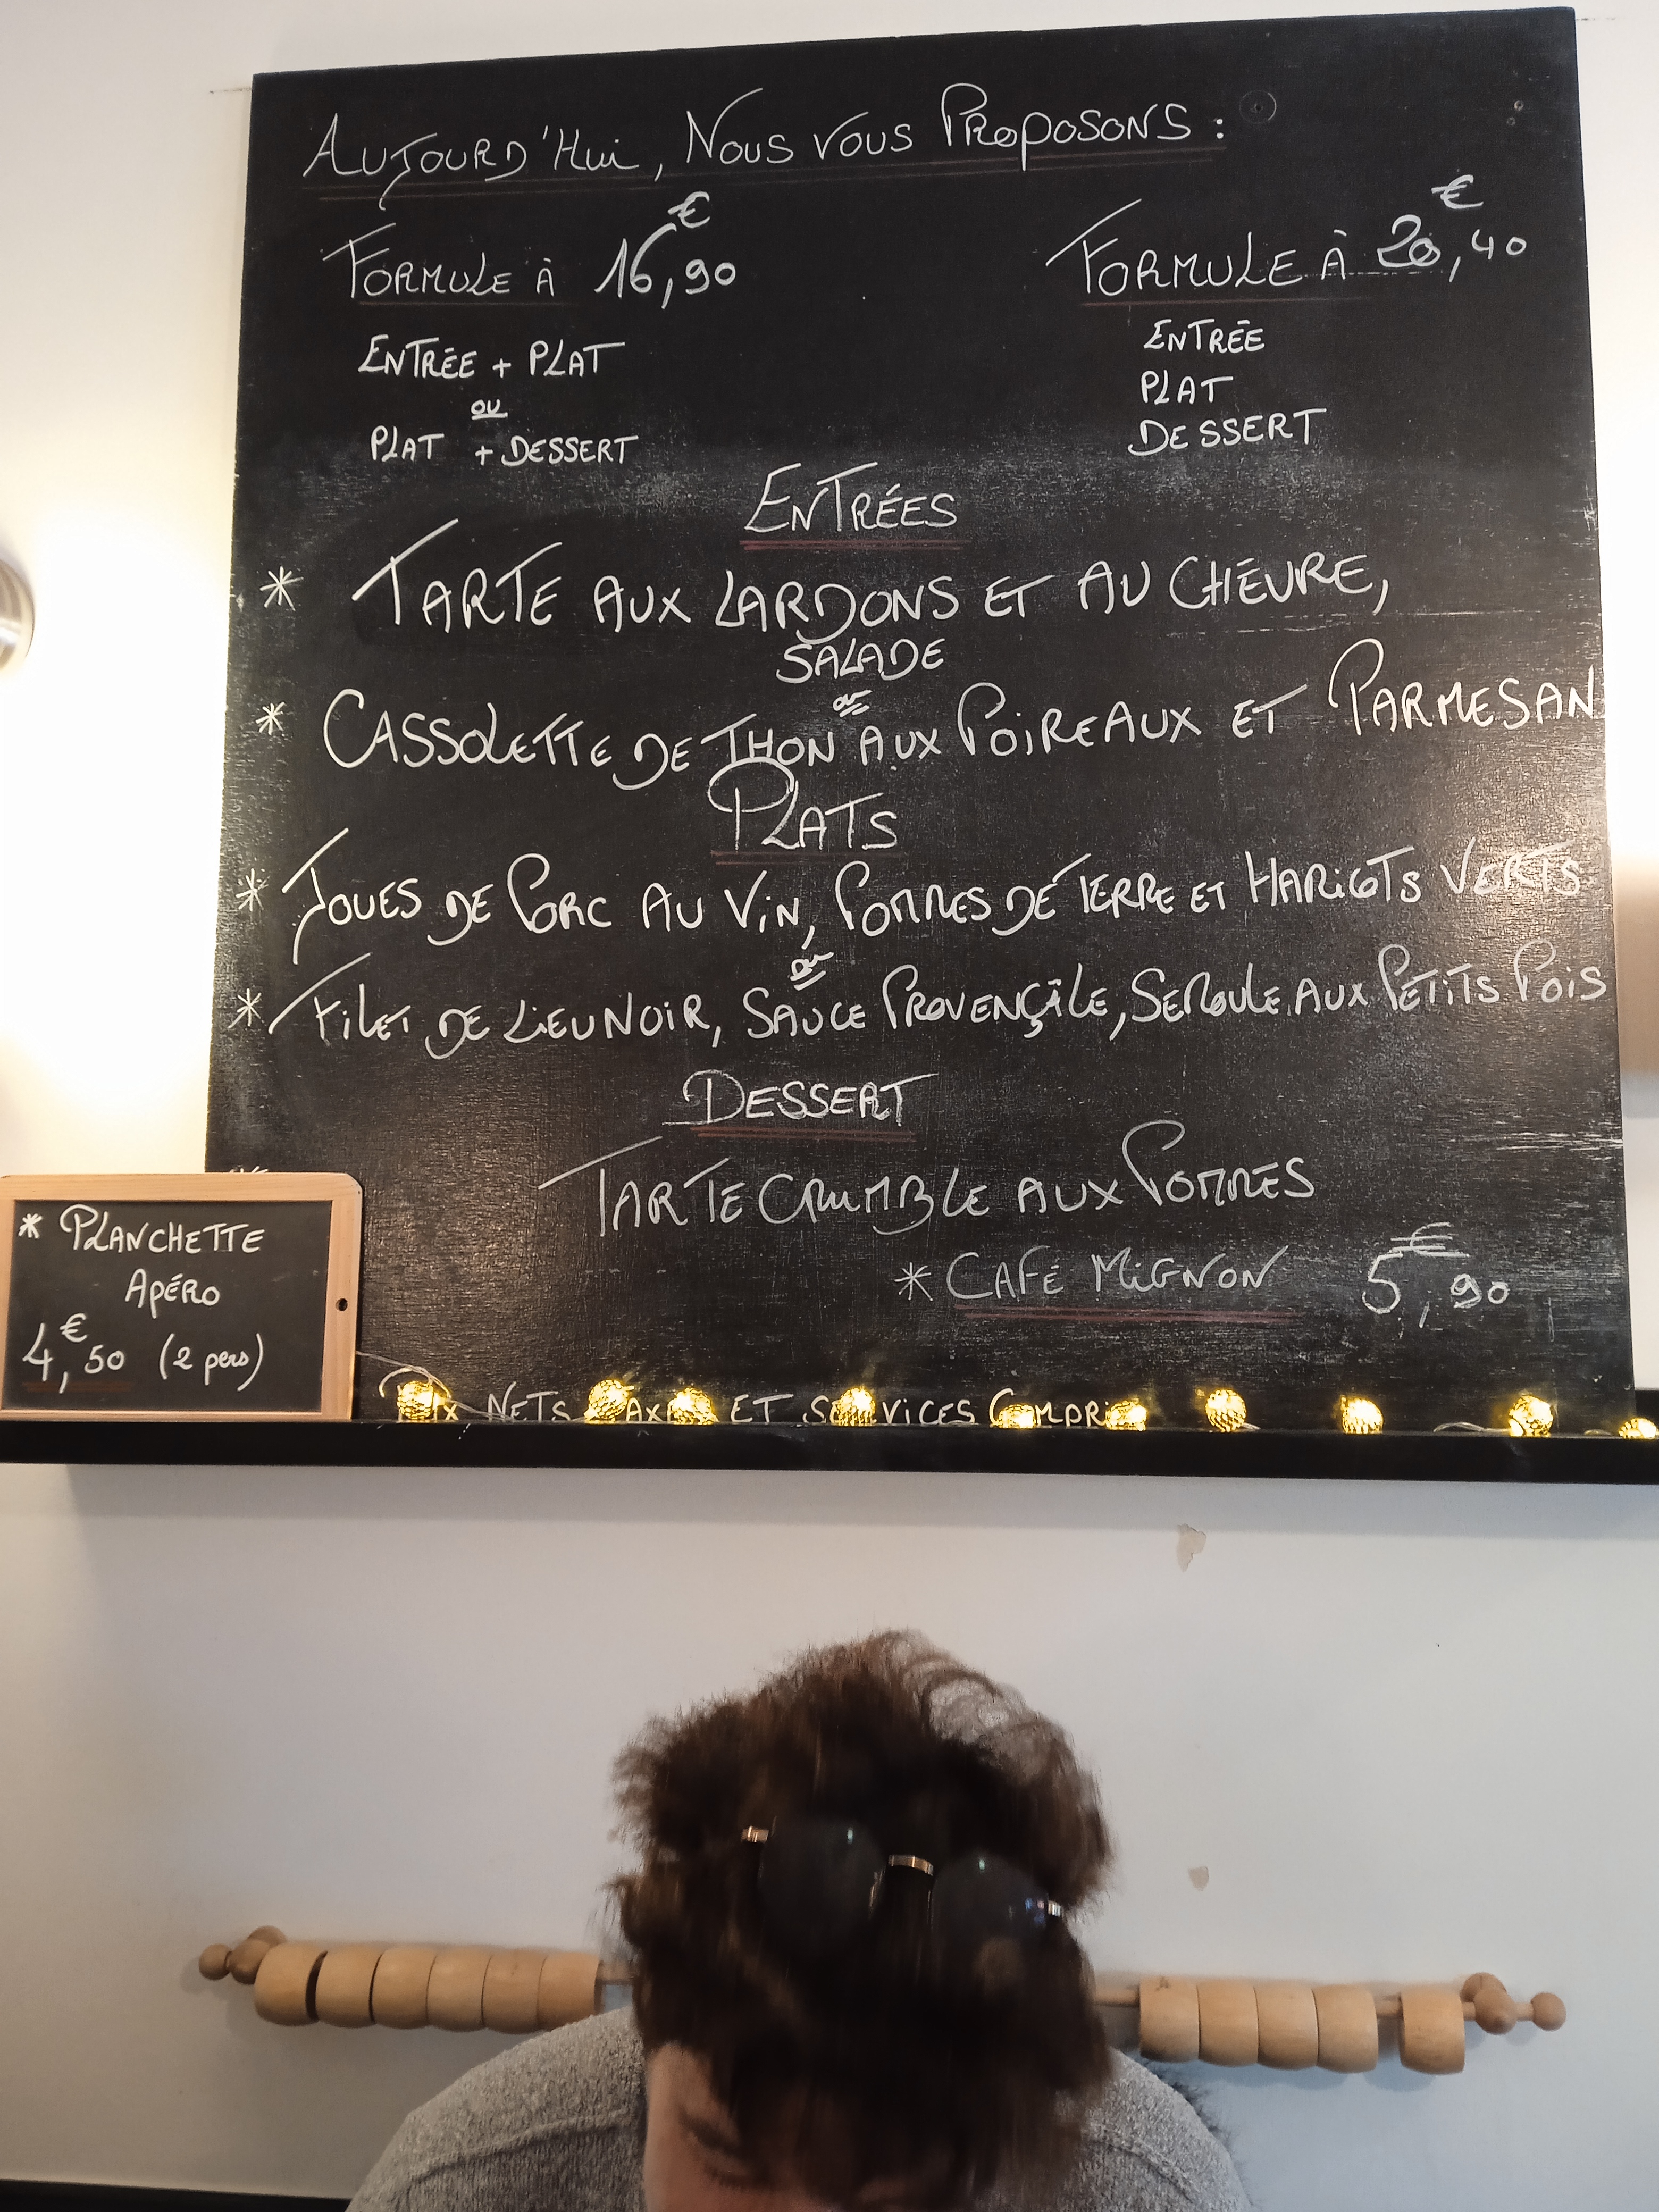 AUJOURD'HUI, NOUS VOUS PROPOSONS :
FORMULE À 16,90€
ENTRÉE + PLAT
OU
PLAT + DESSERT
FORMULE À 20,40€
ENTRÉE
PLAT
DESSERT
ENTRÉES
* TARTE AUX LARDONS ET AU CHÈVRE,
SALADE
ou
* CASSOLETTE DE THON AUX POIREAUX ET PARMESAN
PLATS
* JOUES DE PORC AU VIN, POMMES DE TERRE ET HARICOTS VERTS
ou
* FILET DE LIEU NOIR, SAUCE PROVENÇALE, SEMOULE AUX PETITS POIS
DESSERT
TARTE CRUMBLE AUX POMMES
* CAFÉ MIGNON 5,90€
* PLANCHETTE
APÉRO
4,50€ (2 pers)
NETS ET